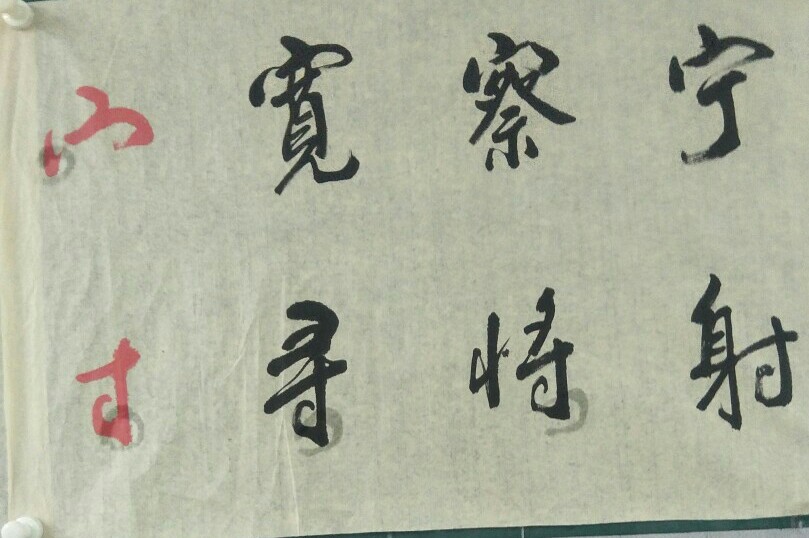 宀寬察宁
寸寻将射